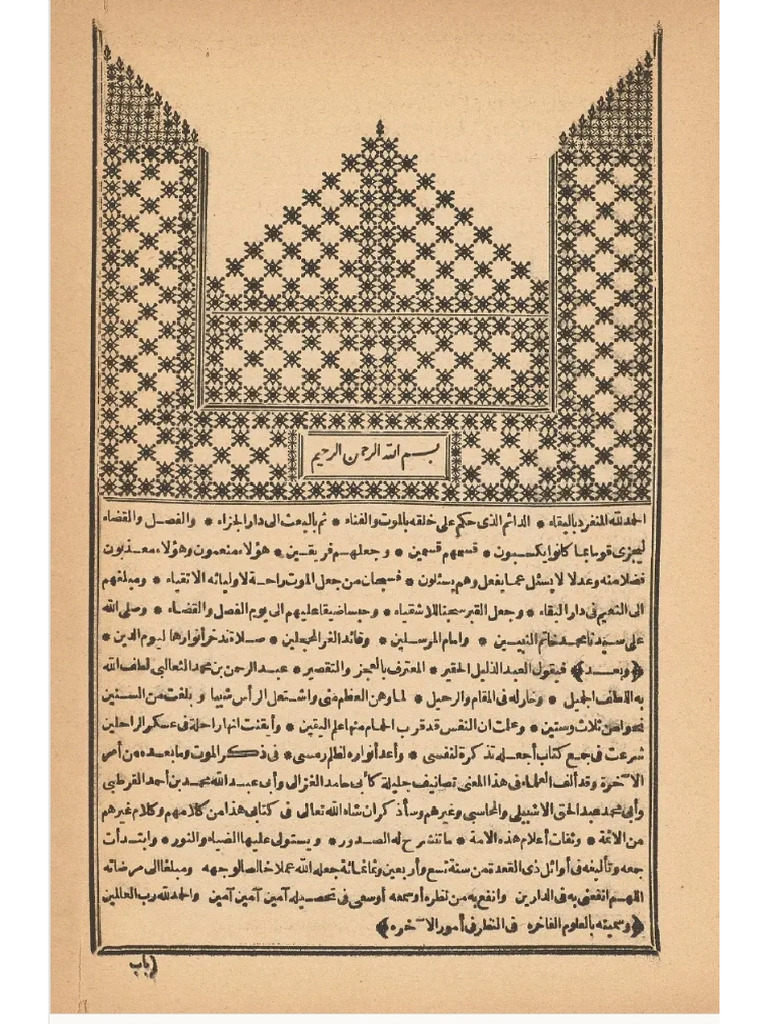 بسم الله الرحمن الرحيم
الحمد لله المنفرد بالبقاء * الدائم الذى حكم على خلقه بالموت والفناء * ثم بالبعث الى دار الجزاء * والفصل والقضاء
ليجزى قوما بما كانوا يكسبون * قسمهم قسمين * وجعلهم فريقين * هؤلاء منعمون وهؤلاء معذبون
فضلا منه وعدلا لا يسئل عما يفعل وهم يسئلون * فسبحان من جعل الموت راحة لاوليائه الاتقياء * ومبلغهم
الى النعيم فى دار البقاء * وجعل القبر سجنا للاشقياء * وحبسا ضيقا عليهم الى يوم الفصل والقضاء * وصلى الله
على سيدنا محمد خاتم النبيين * وامام المرسلين * وقائد الغر المحجلين * صلاة ندخر أنوارها ليوم الدين *
﴿وبعد﴾ فيقول العبد الذليل الحقير * المعترف بالعجز والتقصير * عبد الرحمن بن محمد الثعالبى لطف الله
به اللطف الجميل * وخار له فى المقام والرحيل * لما وهن العظم منى واشتعل الرأس شيبا * وبلغت من السنين
نحوا من ثلاث وستين * وعلمت ان النفس قد قرب الحمام منها علم اليقين * وأيقنت انها راحلة فى عسكر الراحلين
شرعت فى جمع كتاب أجعله تذكرة لنفسى * وأعد أنواره لظلم رمسى * فى ذكر الموت وما بعده من أمر
الآخرة وقد ألف العلماء فى هذا المعنى تصانيف جليلة كأبى حامد الغزالى وأبى عبد الله محمد بن أحمد القرطبى
وأبى محمد عبد الحق الاشبيلى والمحاسبى وغيرهم وسأذكر ان شاء الله تعالى فى كتابى هذا من كلامهم وكلام غيرهم
من الائمة * وثقات أعلام هذه الامة * ما تنشرح له الصدور * ويستولى عليها الضياء والنور * وابتدأت
جمعه وتأليفه فى أوائل ذى القعدة من سنة تسع وأربعين وثمانمائة جعله الله عملا خالصا لوجهه ومبلغا الى مرضاته
اللهم انفعنى به فى الدارين وانفع به من نظره أو سمعه أو سعى فى تحصيله آمين آمين آمين والحمد لله رب العالمين
﴿وسميته بالعلوم الفاخره فى النظر فى أمور الآخره﴾
(باب